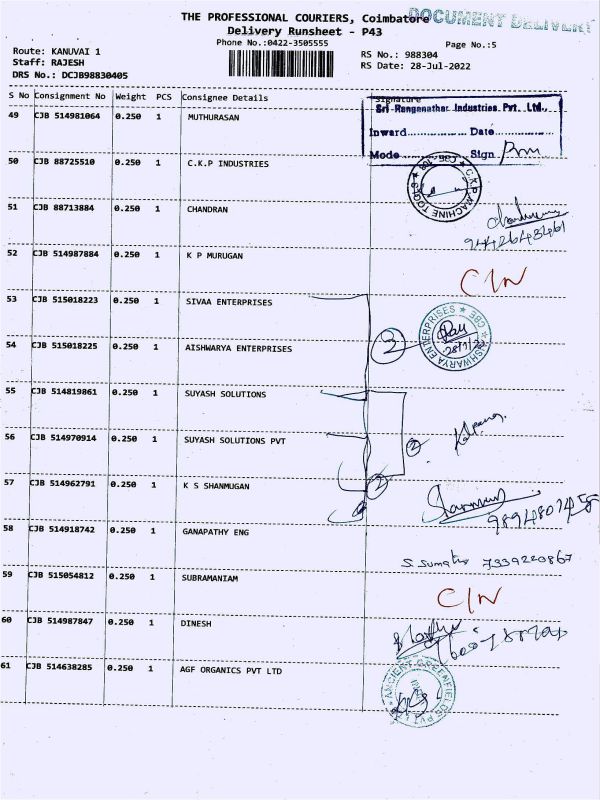 THE PROFESSIONAL COURIERS, Coimbatore
DOCUMENT DELIVERY
Delivery Runsheet - P43
Phone No.:0422-3505555
Page No.:5
Route: KANUVAI 1
RS No.: 988304
Staff: RAJESH
RS Date: 28-Jul-2022
DRS No.: DCJB98830405
S No Consignment No Weight PCS Consignee Details Signature
Sri Ranganathar Industries Pvt. Ltd.,
Inward............... Date...............
Mode............... Sign
49 CJB 514981064 0.250 1 MUTHURASAN
50 CJB 88725510 0.250 1 C.K.P INDUSTRIES
51 CJB 88713884 0.250 1 CHANDRAN
52 CJB 514987884 0.250 1 K P MURUGAN
C/N
53 CJB 515018223 0.250 1 SIVAA ENTERPRISES
54 CJB 515018225 0.250 1 AISHWARYA ENTERPRISES
3
AISHWARYA ENTERPRISES CBE
28/7/22
55 CJB 514819861 0.250 1 SUYASH SOLUTIONS
56 CJB 514970914 0.250 1 SUYASH SOLUTIONS PVT
2
57 CJB 514962791 0.250 1 K S SHANMUGAN
2
58 CJB 514918742 0.250 1 GANAPATHY ENG
S. Sumathi 7339220867
59 CJB 515054812 0.250 1 SUBRAMANIAM
C/N
60 CJB 514987847 0.250 1 DINESH
61 CJB 514638285 0.250 1 AGF ORGANICS PVT LTD